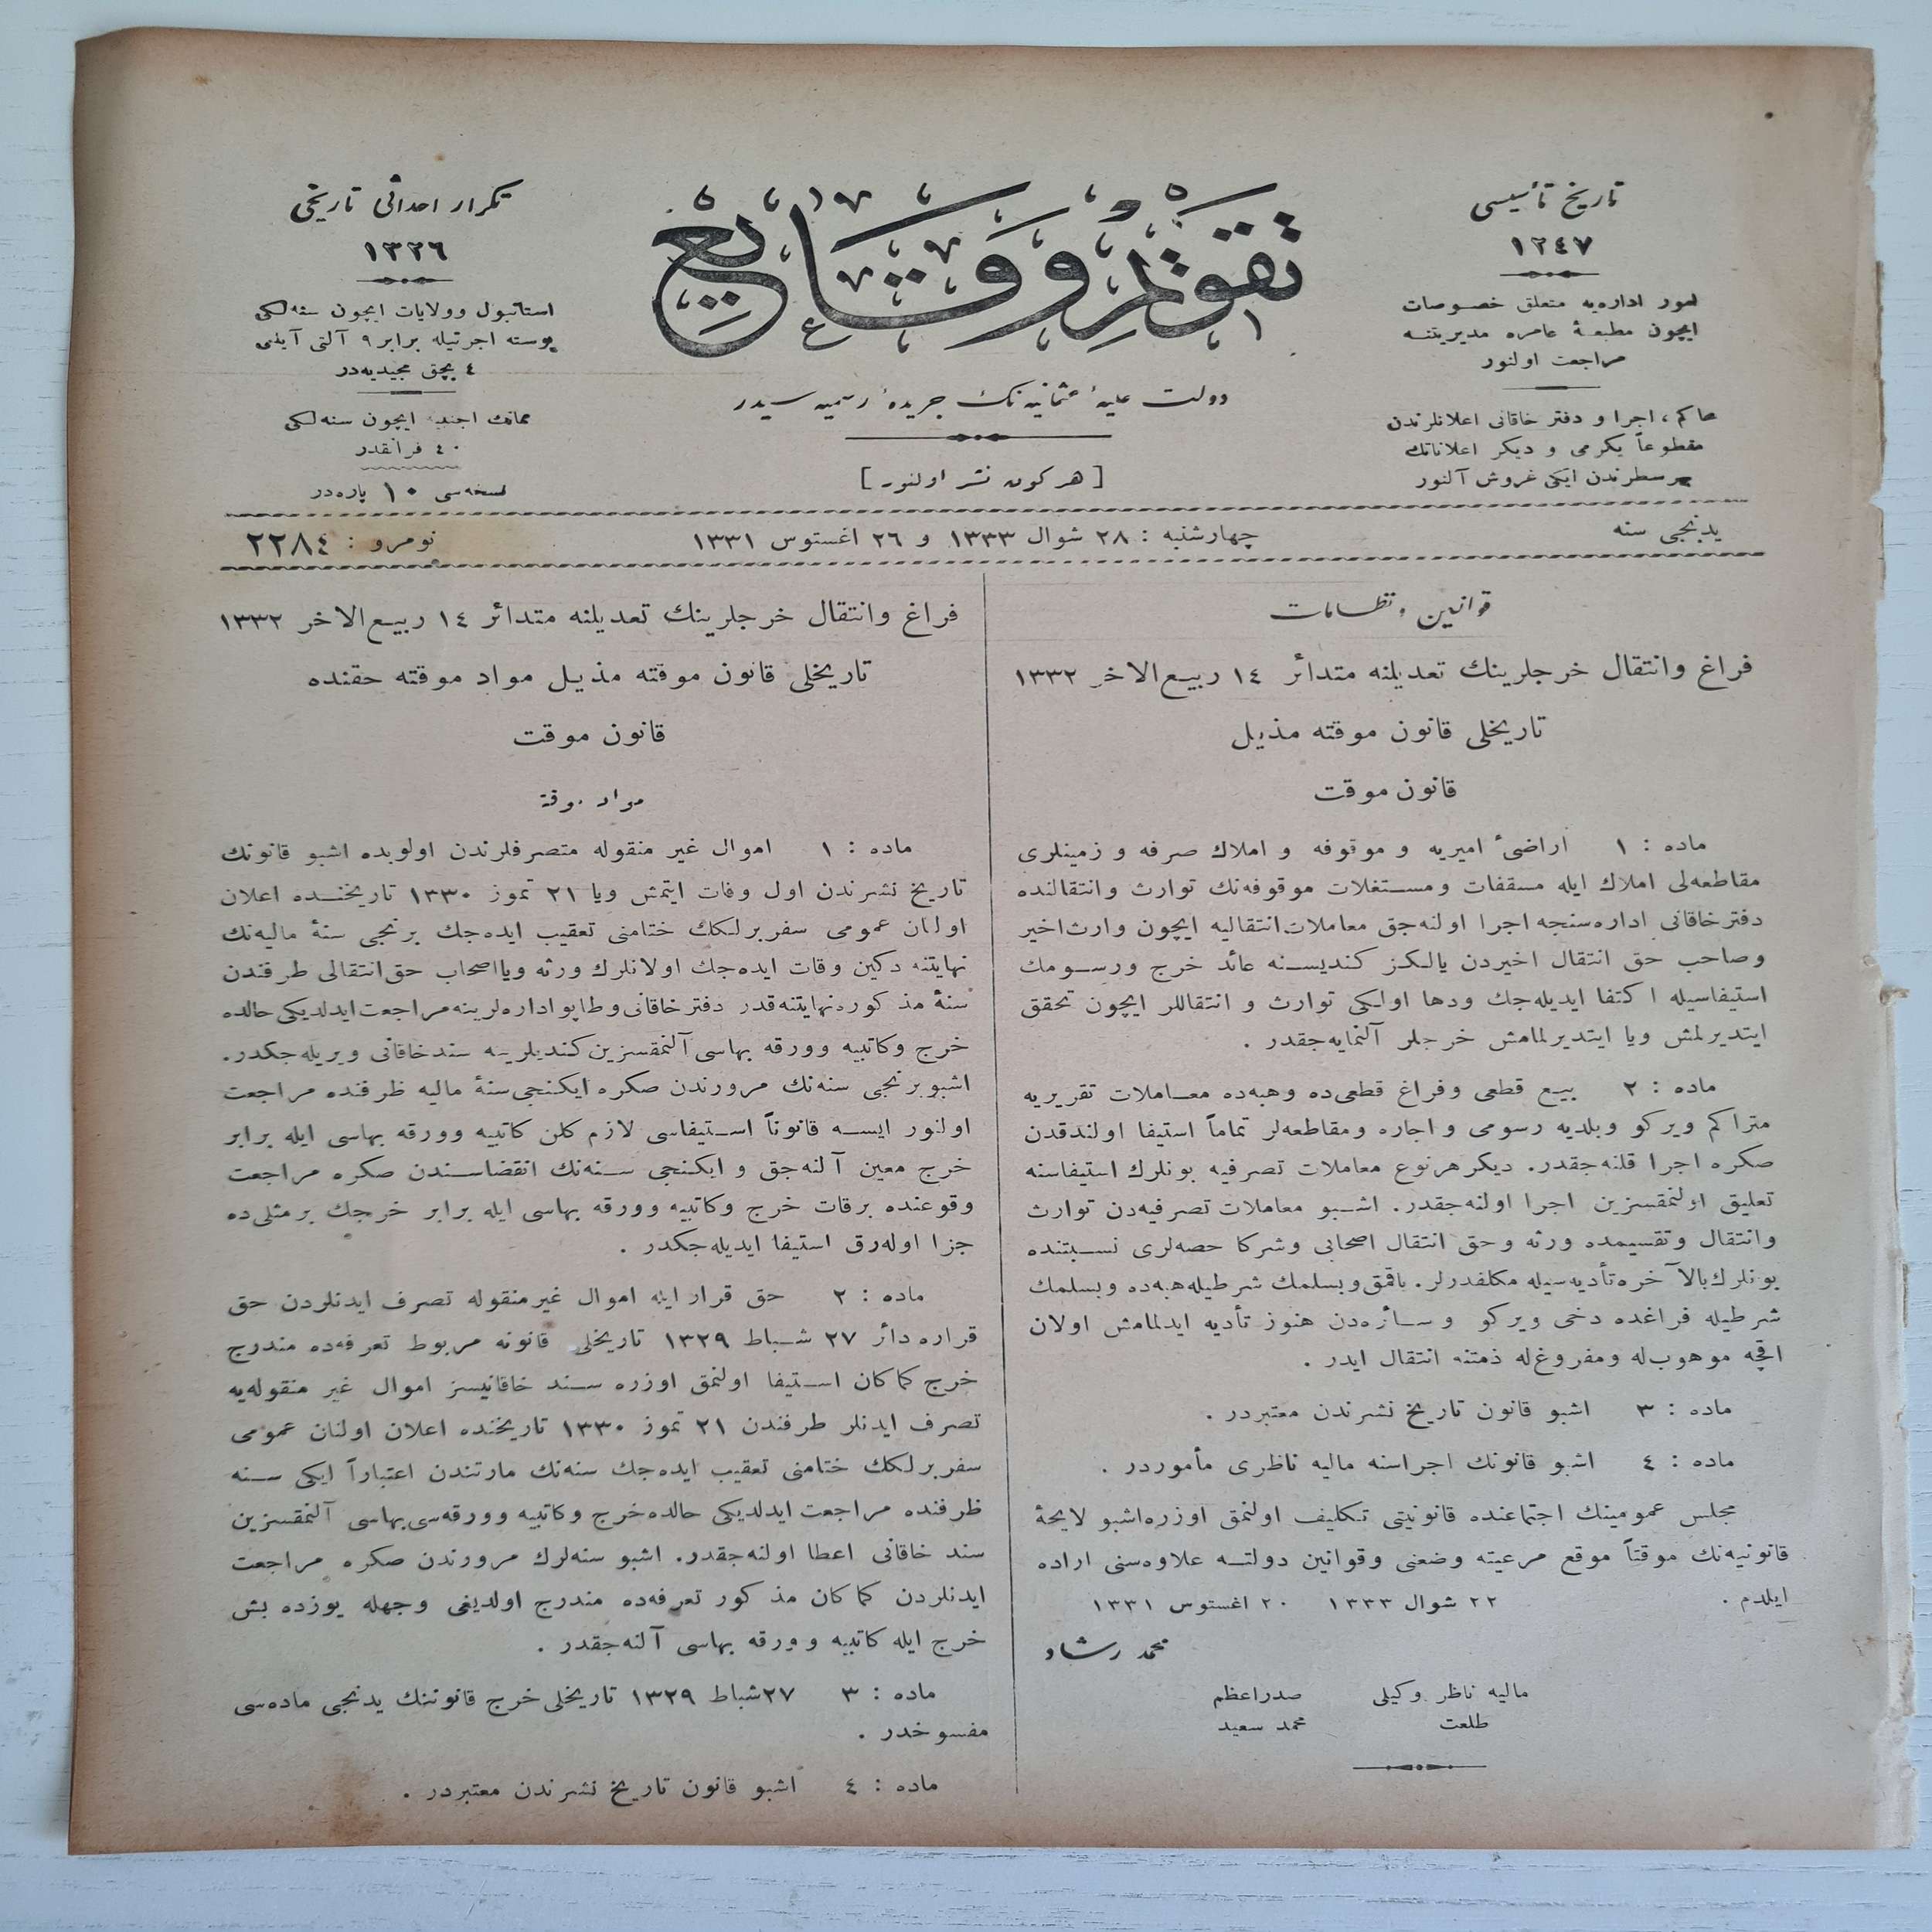 تاریخ تأسیسی
١٢٤٧
امور اداره‌یه متعلق خصوصات
ایچون مطبعهٔ عامره مدیریتنه
مراجعت اولنور
محاکم ، اجرا و دفتر خاقانی اعلانلرندن
مقطوعاً یکرمی و دیکر اعلاناتك
بهر سطرندن ایکی غروش آلنور
تقویم وقایع
دولت علیهٔ عثمانیه نك جریدهٔ رسمیه سیدر
[ هر کون نشر اولنور ]
تکرار احداثی تاریخی
١٣٢٦
استانبول وولایات ایچون سنه‌لکی
پوسته اجرتیله برابر ٩ آلتی آیلغی
٤ بچق مجیدیه‌در
ممالك اجنبیه ایچون سنه‌لکی
٤٠ فرانقدر
نسخه‌سی ١٠ پاره‌در
یدنجی سنه
چهارشنبه : ٢٨ شوال ١٣٣٣ و ٢٦ اغستوس ١٣٣١
نومرو : ٢٢٨٤
قوانین و نظامات
فراغ وانتقال خرجلرینك تعدیلنه متدائر ١٤ ربیع‌الاخر ١٣٣٢
تاریخلی قانون موقته مذیل
قانون موقت
ماده : ١ اراضیٔ امیریه و موقوفه و املاك صرفه و زمینلری
مقاطعه‌لی املاك ایله مسقفات ومستغلات موقوفه‌نك توارث وانتقالنده
دفتر خاقانی اداره‌سنجه اجرا اولنه‌جق معاملات انتقالیه ایچون وارث اخیر
وصاحب حق انتقال اخیردن یالکز کندیسنه عائد خرج ورسومك
استیفاسیله اکتفا ایدیله‌جك ودها اولکی توارث و انتقاللر ایچون تحقق
ایتدیرلمش ویا ایتدیرلمامش خرجلر آلنمایه‌جقدر .
ماده : ٢ بیع قطعی وفراغ قطعی‌ده وهبه‌ده معاملات تقریریه
متراکم ویرکو وبلدیه رسومی و اجاره ومقاطعه‌لر تماماً استیفا اولندقدن
صکره اجرا قلنه‌جقدر. دیکر هرنوع معاملات تصرفیه بونلرك استیفاسنه
تعلیق اولنمقسزین اجرا اولنه‌جقدر. اشبو معاملات تصرفیه‌دن توارث
وانتقال وتقسیمده ورثه وحق انتقال اصحابی وشرکا حصه‌لری نسبتنده
بونلرك بالآخره تأدیه‌سیله مکلفدرلر. باقمق وبسلمك شرطیله هبه‌ده وبسلمك
شرطیله فراغده دخی ویرکو وسائره‌دن هنوز تأدیه ایدلمامش اولان
اقچه موهوب‌له ومفروغ‌له ذمتنه انتقال ایدر .
ماده : ٣ اشبو قانون تاریخ نشرندن معتبردر .
ماده : ٤ اشبو قانونك اجراسنه مالیه ناظری مأموردر .
مجلس عمومینك اجتماعنده قانونیتی تکلیف اولنمق اوزره اشبو لایحهٔ
قانونیه‌نك موقتاً موقع مرعیته وضعنی وقوانین دولته علاوه‌سنی اراده
ایلدم . ٢٢ شوال ١٣٣٣ ٢٠ اغستوس ١٣٣١
محمد رشاد
مالیه ناظر وکیلی صدراعظم
طلعت محمد سعید
فراغ وانتقال خرجلرینك تعدیلنه متدائر ١٤ ربیع‌الاخر ١٣٣٢
تاریخلی قانون موقته مذیل مواد موقته حقنده
قانون موقت
مواد موقته
ماده : ١ اموال غیر منقوله متصرفلرندن اولوبده اشبو قانونك
تاریخ نشرندن اول وفات ایتمش ویا ٢١ تموز ١٣٣٠ تاریخنده اعلان
اولنان عمومی سفربرلکك ختامنی تعقیب ایده‌جك برنجی سنهٔ مالیه‌نك
نهایتنه دکین وفات ایده‌جك اولانلرك ورثه ویا اصحاب حق انتقالی طرفندن
سنهٔ مذکوره نهایتنه‌قدر دفتر خاقانی وطاپو اداره‌لرینه مراجعت ایدلدیکی حالده
خرج وکاتبیه وورقه بهاسی آلنمقسزین کندیلرینه سند خاقانی ویریله‌جکدر.
اشبو برنجی سنه‌نك مرورندن صکره ایکنجی سنهٔ مالیه ظرفنده مراجعت
اولنور ایسه قانوناً استیفاسی لازم کلن کاتبیه وورقه بهاسی ایله برابر
خرج معین آلنه‌جق و ایکنجی سنه‌نك انقضاسندن صکره مراجعت
وقوعنده برقات خرج وکاتبیه وورقه بهاسی ایله برابر خرجك برمثلی‌ده
جزا اوله‌رق استیفا ایدیله‌جکدر .
ماده : ٢ حق قرار ایله اموال غیر منقوله تصرف ایدنلردن حق
قراره دائر ٢٧ شباط ١٣٢٩ تاریخلی قانونه مربوط تعرفه‌ده مندرج
خرج کماکان استیفا اولنمق اوزره سند خاقانیسز اموال غیر منقوله‌یه
تصرف ایدنلر طرفندن ٢١ تموز ١٣٣٠ تاریخنده اعلان اولنان عمومی
سفربرلکك ختامنی تعقیب ایده‌جك سنه‌نك مارتندن اعتباراً ایکی سنه
ظرفنده مراجعت ایدلدیکی حالده خرج وکاتبیه وورقه‌سی بهاسی آلنمقسزین
سند خاقانی اعطا اولنه‌جقدر. اشبو سنه‌لرك مرورندن صکره مراجعت
ایدنلردن کماکان مذکور تعرفه‌ده مندرج اولدیغی وجهله یوزده بش
خرج ایله کاتبیه وورقه بهاسی آلنه‌جقدر .
ماده : ٣ ٢٧ شباط ١٣٢٩ تاریخلی خرج قانوننك یدنجی ماده‌سی
مفسوخدر .
ماده : ٤ اشبو قانون تاریخ نشرندن معتبردر .